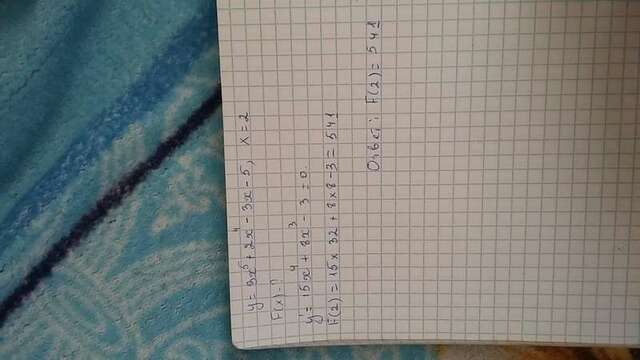 y = 3x⁵ + 2x⁴ - 3x - 5, x = 2
F(x) - ?
y' = 15x⁴ + 8x³ - 3 = 0.
F(2) = 15 x 32 + 8 x 8 - 3 = 541
Ответ: F(2) = 541